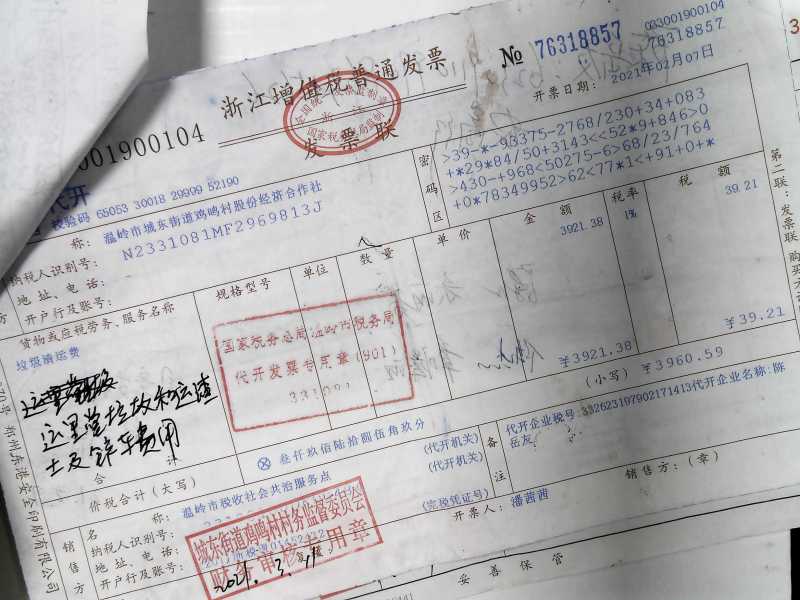 033001900104
浙江增值税普通发票
№ 76318857
76318857
001900104
发票联
开票日期: 2021年02月07日
代开
校验码 65053 30018 29999 52190
密码区
>39-*-93375-2768/230+34+083
+*29*84/50+3143<<52*9+846>0
>430-+968<50275-6>68/23/764
+0*78349952>62<77*1<+91+0+*
称: 温岭市城东街道鸡鸣村股份经济合作社
纳税人识别号: N2331081MF2969813J
地址、电话:
开户行及账号:
货物或应税劳务、服务名称
规格型号
单位
数量
单价
金额
税率
税额
垃圾清运费
3921.38
1%
39.21
国家税务总局温岭市税务局
代开发票专用章(901)
这里是垃圾和运渣
土及铲车费用
合计
¥3921.38
¥39.21
价税合计(大写)
⊗ 叁仟玖佰陆拾圆伍角玖分
(小写) ¥3960.59
销售方
名称: 温岭市税收社会共治服务点
(代开机关)
纳税人识别号:
(代开机关)
地址、电话:
开户行及账号:
(完税凭证号)
备注
代开企业税号:332623197902171413代开企业名称:陈
岳友
复核:
开票人: 潘茜茜
销售方:(章)
城东街道鸡鸣村村务监督委员会
财务审核专用章
2021.3.11
第二联:发票联
郑州东港安全印刷有限公司
妥善保管